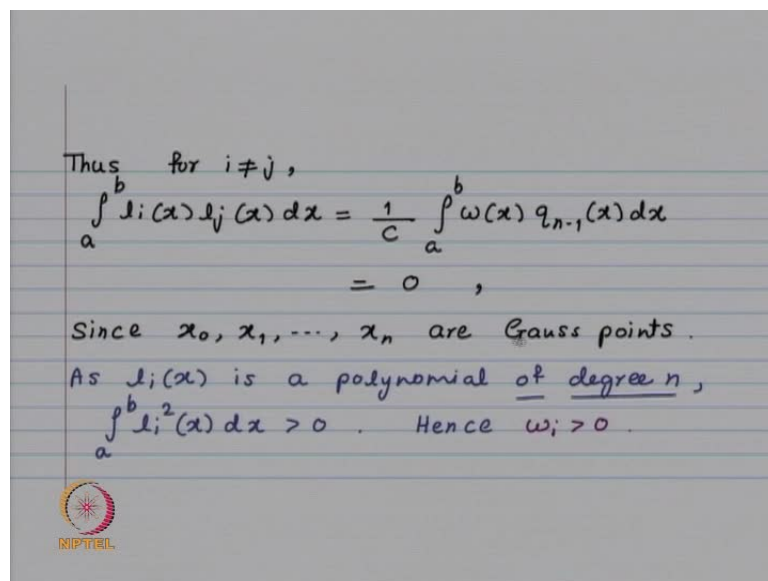 Thus for i ≠ j ,
∫ₐᵇ lᵢ(x) lⱼ(x) dx = 1/C ∫ₐᵇ ω(x) qₙ₋₁(x) dx
= 0 ,
Since x₀, x₁, ..., xₙ are Gauss points.
As lᵢ(x) is a polynomial of degree n,
∫ₐᵇ lᵢ²(x) dx > 0 . Hence ωᵢ > 0 .
NPTEL